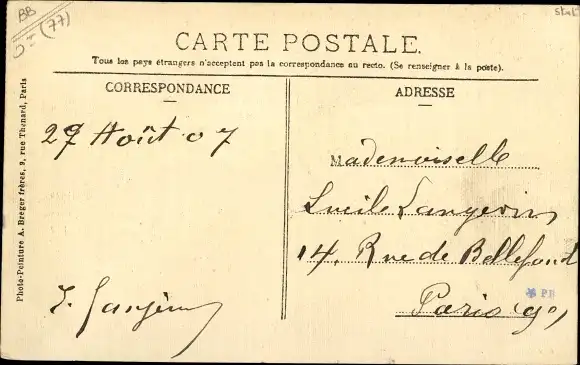 BB
(77)
CARTE POSTALE.
Tous les pays étrangers n'acceptent pas la correspondance au recto. (Se renseigner à la poste).
CORRESPONDANCE
ADRESSE
29 Août 07
Mademoiselle
Lucile Langevin
14. Rue de Bellefond
Paris (9e)
PB
Photo-Peinture A. Breger frères, 9, rue Thénard, Paris